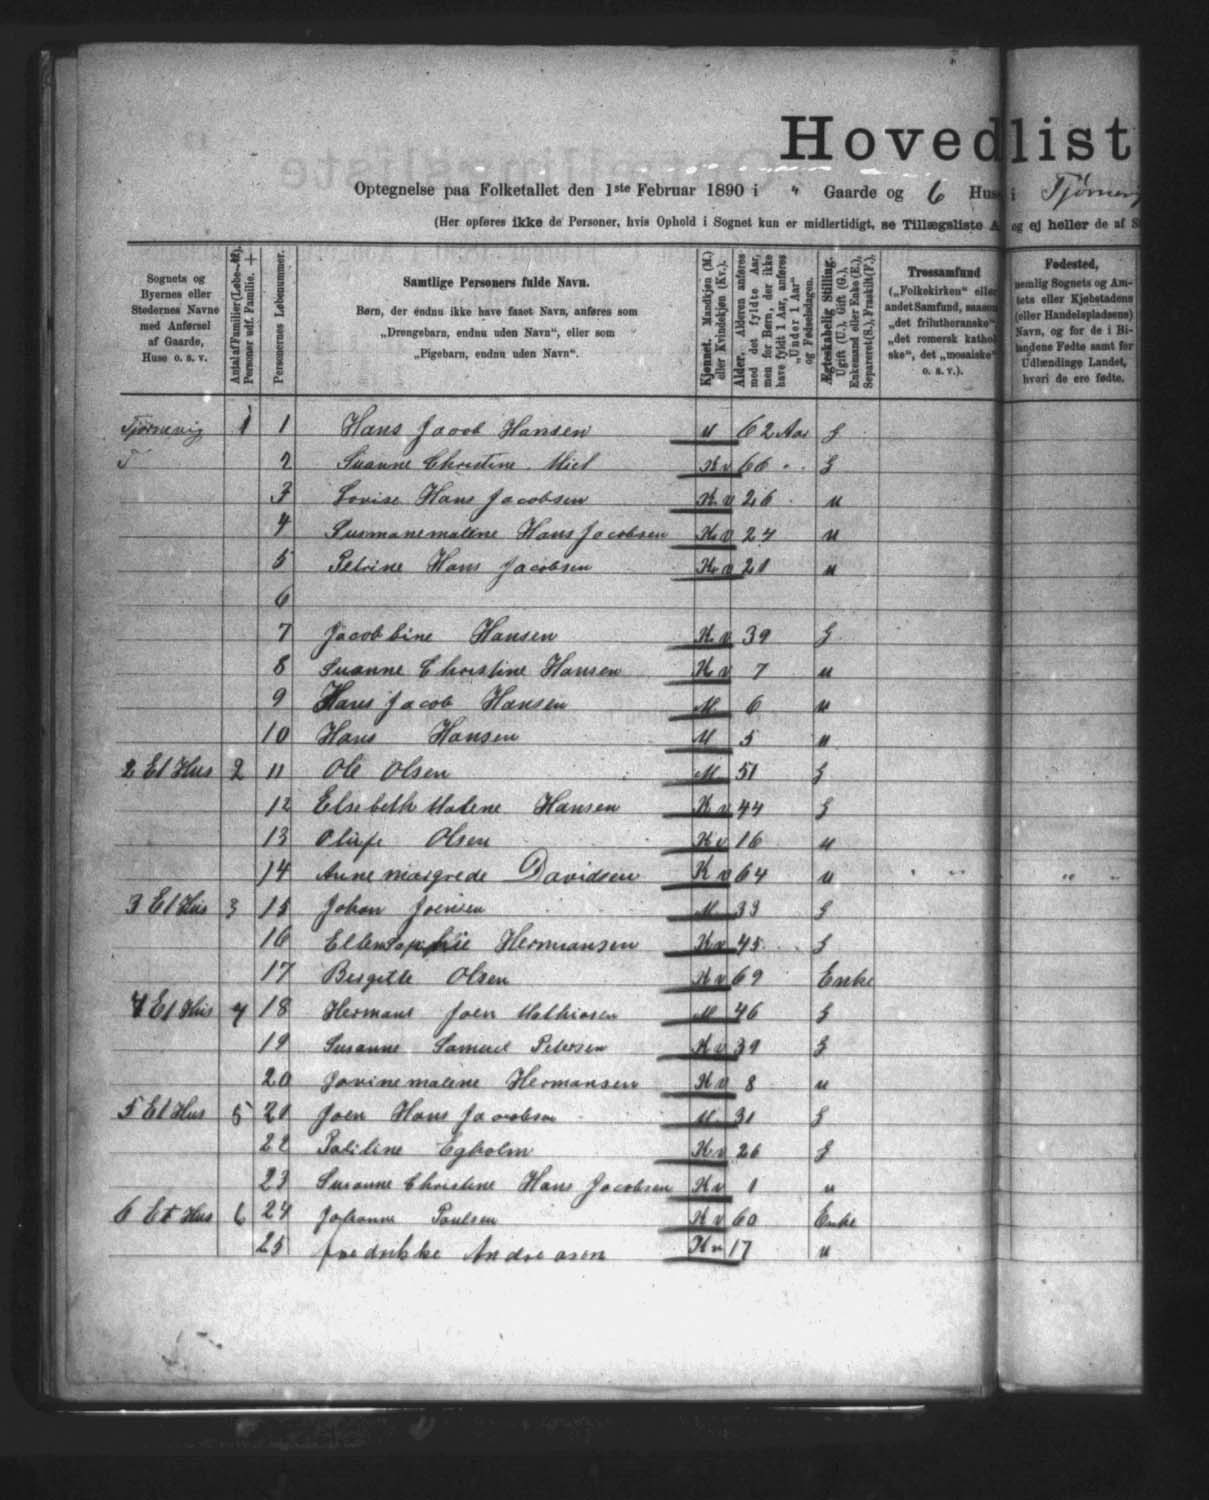 Hovedlist
Optegnelse paa Folketallet den 1ste Februar 1890 i " Gaarde og 6 Huse i
(Her opføres ikke de Personer, hvis Ophold i Sognet kun er midlertidigt, se Tillægsliste A og ej heller de af S
Sognets og Byernes eller Stedernes Navne med Anførsel af Gaarde, Huse o. s. v.
Personernes Løbenummer.
Samtlige Personers fulde Navn.
Børn, der endnu ikke have faaet Navn, anføres som
„Drengebarn, endnu uden Navn“, eller som
„Pigebarn, endnu uden Navn“.
Kjønnet. Mandkjøn (M.) eller Kvindekjøn (Kv.).
Alder. Alderen anføres med det fyldte Aar, men for Børn, der ikke have fyldt 1 Aar, anføres „Under 1 Aar“ og Fødselsdagen.
Ægteskabelig Stilling. Ugift (U.), Gift (G.), Enkemand eller Enke (E.), Separeret (S.), Fraskilt (F.).
Trossamfund
(„Folkekirken“ eller
andet Samfund, saasom
„det frilutheranske“,
„det romersk kathol
ske“, det „mosaiske“
o. s. v.).
Fødested,
nemlig Sognets og Am-
tets eller Kjøbstadens
(eller Handelspladsens)
Navn, og for de i Bi-
landene Fødte samt for
Udlændinge Landet,
hvori de ere fødte.
Tjørnevig 1 1 Hans Jacob Hansen M 62 Aar G
2 Suanne Christine Kv 66 " G
3 Lovise Hans Jacobsen Kv 26 u
4 Susmanemalene Hans Jacobsen Kv 24 u
5 Petrine Hans Jacobsen Kv 21 u
6
7 Jacobbine Hansen Kv 39 G
8 Suanne Christine Hansen Kv 7 u
9 Hans Jacob Hansen M 6 u
10 Hans Hansen M 5 u
2 Et Hus 2 11 Ole Olsen M 51 G
12 Elsebeth Malene Hansen Kv 44 G
13 Olufe Olsen Kv 16 u
14 Anne margrede Davidsen Kv 64 u
3 Et Hus 3 15 Johan Joensen M 33 G
16 Hermansen Kv 45 G
17 Birgitte Olsen Kv 69 Enke
4 Et Hus 4 18 Hermans Joen Mathiasen M 46 G
19 Susanne Samuel Petersen Kv 39 G
20 Jovinemalene Hermansen Kv 8 u
5 Et Hus 5 21 Joen Hans Jacobsen M 31 G
22 Egholm Kv 26 G
23 Susanne Christine Hans Jacobsen Kv 1 u
6 Et Hus 6 24 Johanne Poulsen Kv 60 Enke
25 fredrikke Andreasen Kv 17 u